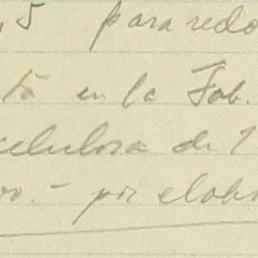 ,5 para redo
tá en la Fab.
celulosa de 1
00.- por elab